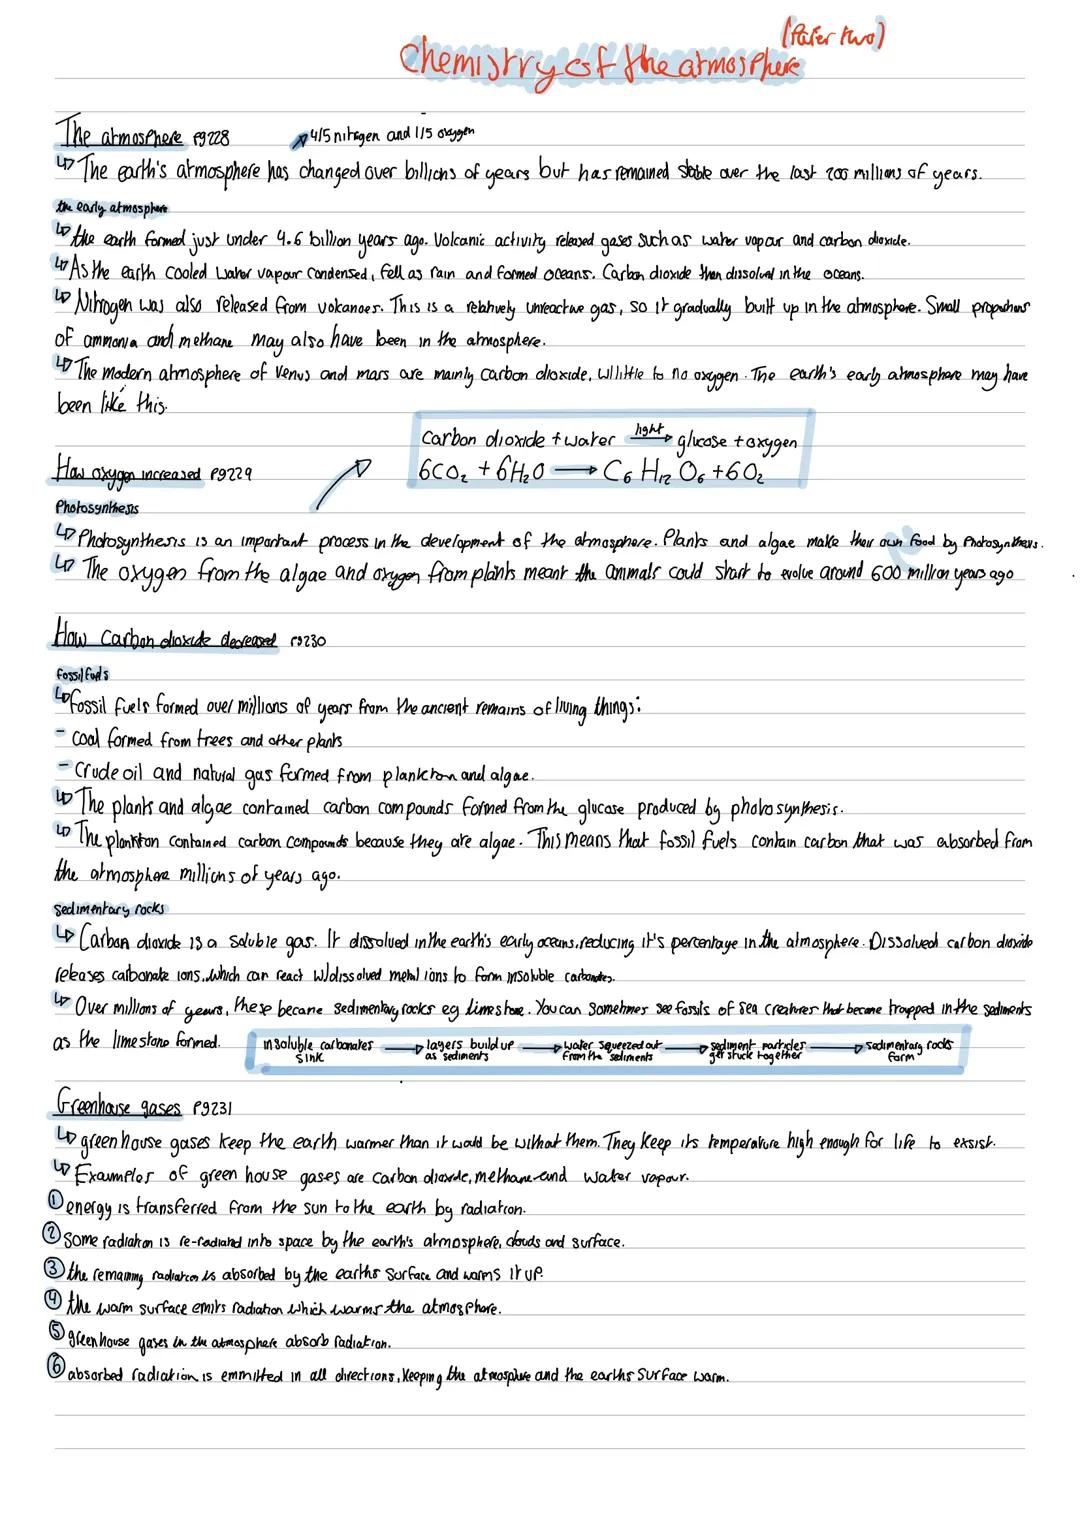 (Paper two)
Chemistry of the atmosphere
The atmosphere pg228
4/5 nitrogen and 1/5 oxygen
The earth's atmosphere has changed over billions of years but has remained stable over the last 200 millions of years.
the early atmosphere
the earth formed just under 4.6 billion years ago. Volcanic activity released gases such as water vapour and carbon dioxide.
As the earth cooled water vapour condensed, fell as rain and formed oceans. Carbon dioxide then dissolved in the oceans.
Nitrogen was also released from volcanoes. This is a relatively unreactive gas, so it gradually built up in the atmosphere. Small proportions
of ammonia and methane may also have been in the atmosphere.
The modern atmosphere of Venus and mars are mainly carbon dioxide, w/little to no oxygen. The earth's early atmosphere may have
been like this.
Carbon dioxide + water light→ glucose + oxygen
6CO₂ + 6H₂O → C₆ H₁₂ O₆ + 6O₂
How oxygen increased pg229
Photosynthesis
Photosynthesis is an important process in the development of the atmosphere. Plants and algae make their own food by Photosynthesis.
The oxygen from the algae and oxygen from plants meant the animals could start to evolve around 600 million years ago
How Carbon dioxide decreased pg230
fossil fuels
fossil fuels formed over millions of years from the ancient remains of living things:
- coal formed from trees and other plants
- Crude oil and natural gas formed from plankton and algae.
The plants and algae contained carbon compounds formed from the glucose produced by photosynthesis.
The plankton contained carbon compounds because they are algae. This means that fossil fuels contain carbon that was absorbed from
the atmosphere millions of years ago.
Sedimentary rocks
Carbon dioxide is a soluble gas. It dissolved in the earth's early oceans, reducing it's percentage in the atmosphere. Dissolved carbon dioxide
releases carbonate ions, which can react w/dissolved metal ions to form insoluble carbonates.
Over millions of years, these became sedimentary rocks eg limestone. You can sometimes see fossils of sea creatures that became trapped in the sediments
as the limestone formed.
insoluble carbonates sink → layers build up as sediments → water squeezed out from the sediments → sediment particles get stuck together → sedimentary rocks form
Greenhouse gases pg231
greenhouse gases keep the earth warmer than it would be without them. They keep its temperature high enough for life to exsist.
Examples of green house gases are carbon dioxide, methane and water vapour.
① energy is transferred from the sun to the earth by radiation.
② Some radiation is re-radiated into space by the earth's atmosphere, clouds and surface.
③ the remaining radiation is absorbed by the earths surface and warms it up.
④ the warm surface emits radiation which warms the atmosphere.
⑤ greenhouse gases in the atmosphere absorb radiation.
⑥ absorbed radiation is emmitted in all directions, keeping the atmosphere and the earths surface warm.